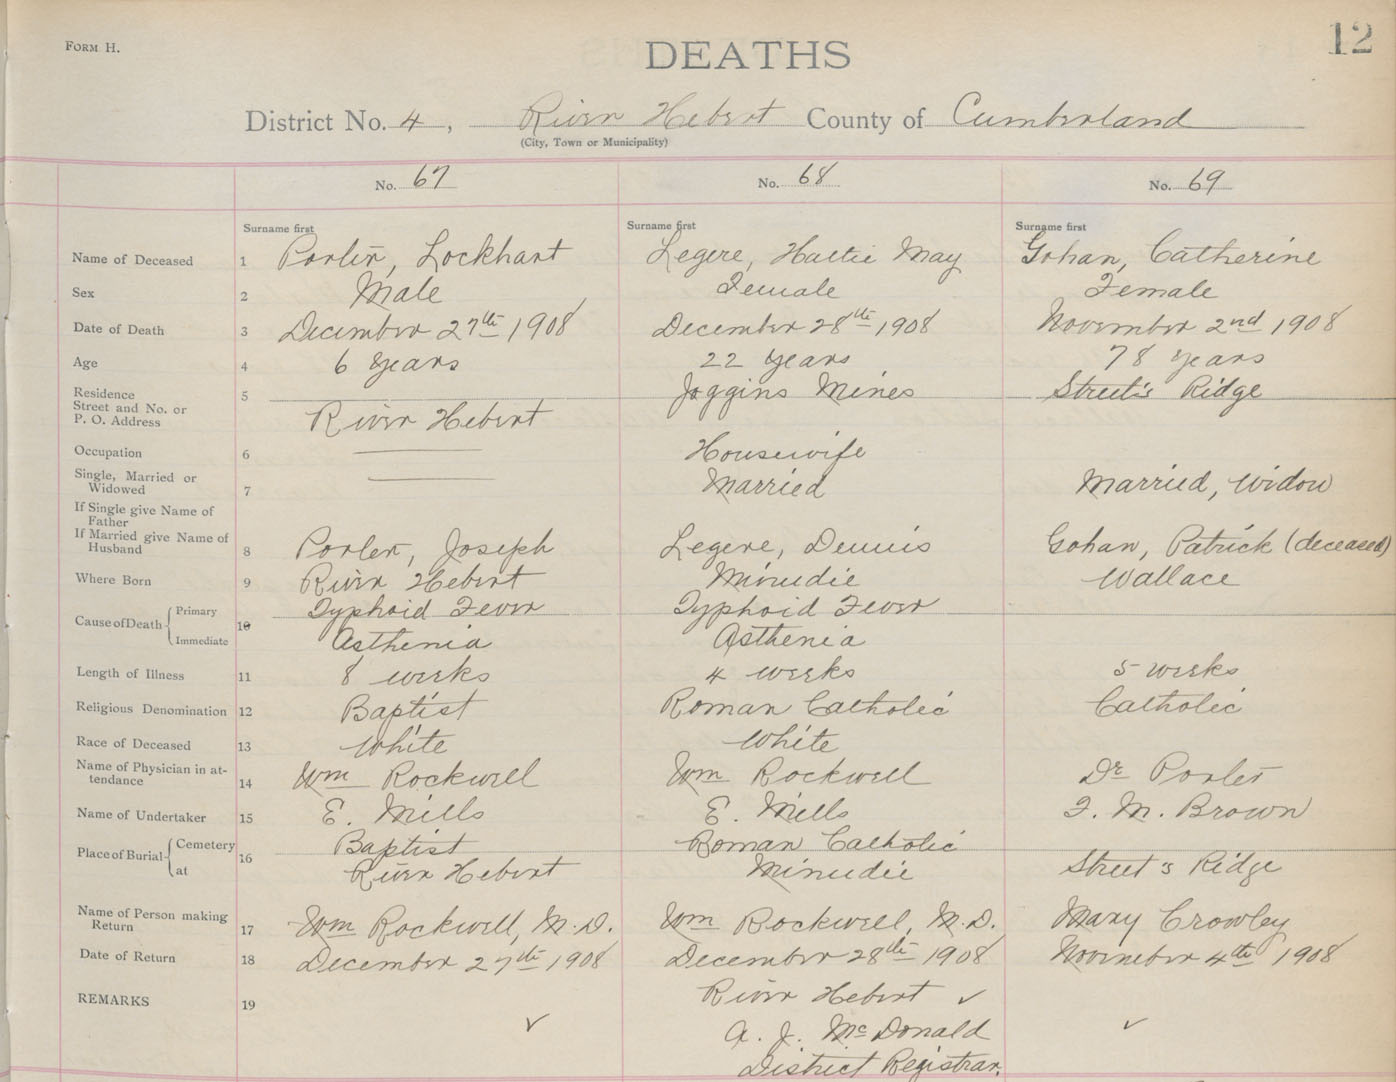 FORM H.
12
DEATHS
District No. 4, River Hebert County of Cumberland
(City, Town or Municipality)
No. 67 No. 68 No. 69
Surname first Surname first Surname first
Name of Deceased 1 Porter, Lockhart Legere, Hattie May Gohan, Catherine
Sex 2 Male Female Female
Date of Death 3 December 27th 1908 December 28th 1908 November 2nd 1908
Age 4 6 years 22 years 78 years
Residence 5 Joggins Mines Street's Ridge
Street and No. or
P. O. Address River Hebert
Occupation 6 Housewife
Single, Married or
Widowed 7 Married Married, Widow
If Single give Name of
Father
If Married give Name of
Husband 8 Porter, Joseph Legere, Dennis Gohan, Patrick (deceased)
Where Born 9 River Hebert Minudie Wallace
Cause of Death Primary 10 Typhoid Fever Typhoid Fever
Immediate Asthenia Asthenia
Length of Illness 11 8 weeks 4 weeks 5 weeks
Religious Denomination 12 Baptist Roman Catholic Catholic
Race of Deceased 13 White White
Name of Physician in at-
tendance 14 Wm Rockwell Wm Rockwell Dr Porter
Name of Undertaker 15 E. Mills E. Mills F. M. Brown
Place of Burial Cemetery 16 Baptist Roman Catholic
at River Hebert Minudie Street's Ridge
Name of Person making
Return 17 Wm Rockwell, M.D. Wm Rockwell, M.D. Mary Crowley
Date of Return 18 December 27th 1908 December 28th 1908 November 4th 1908
REMARKS 19 River Hebert ✓
✓ A. J. McDonald ✓
District Registrar.